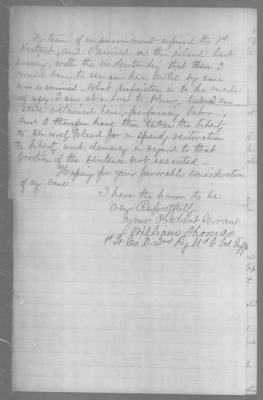 My term of imprisonment expired the 1st
instant, and I arrived on this island last
evening, with the understanding that there I
would have to remain here until my case
was examined. What disposition is to be made
of my case I am at a loss to know, but as I am
still retained here, performing labor,
and I therefore have thus taken the liberty
to sincerely plead for a speedy restoration
to liberty and clemency in regard to that
portion of the sentence not executed.
Hoping for your favorable consideration
of my case
I have the honor to be
Very Respectfully
Your Obedient Servant
William Thomas
1st Lt Co D. 2nd Reg U.S. C Vol